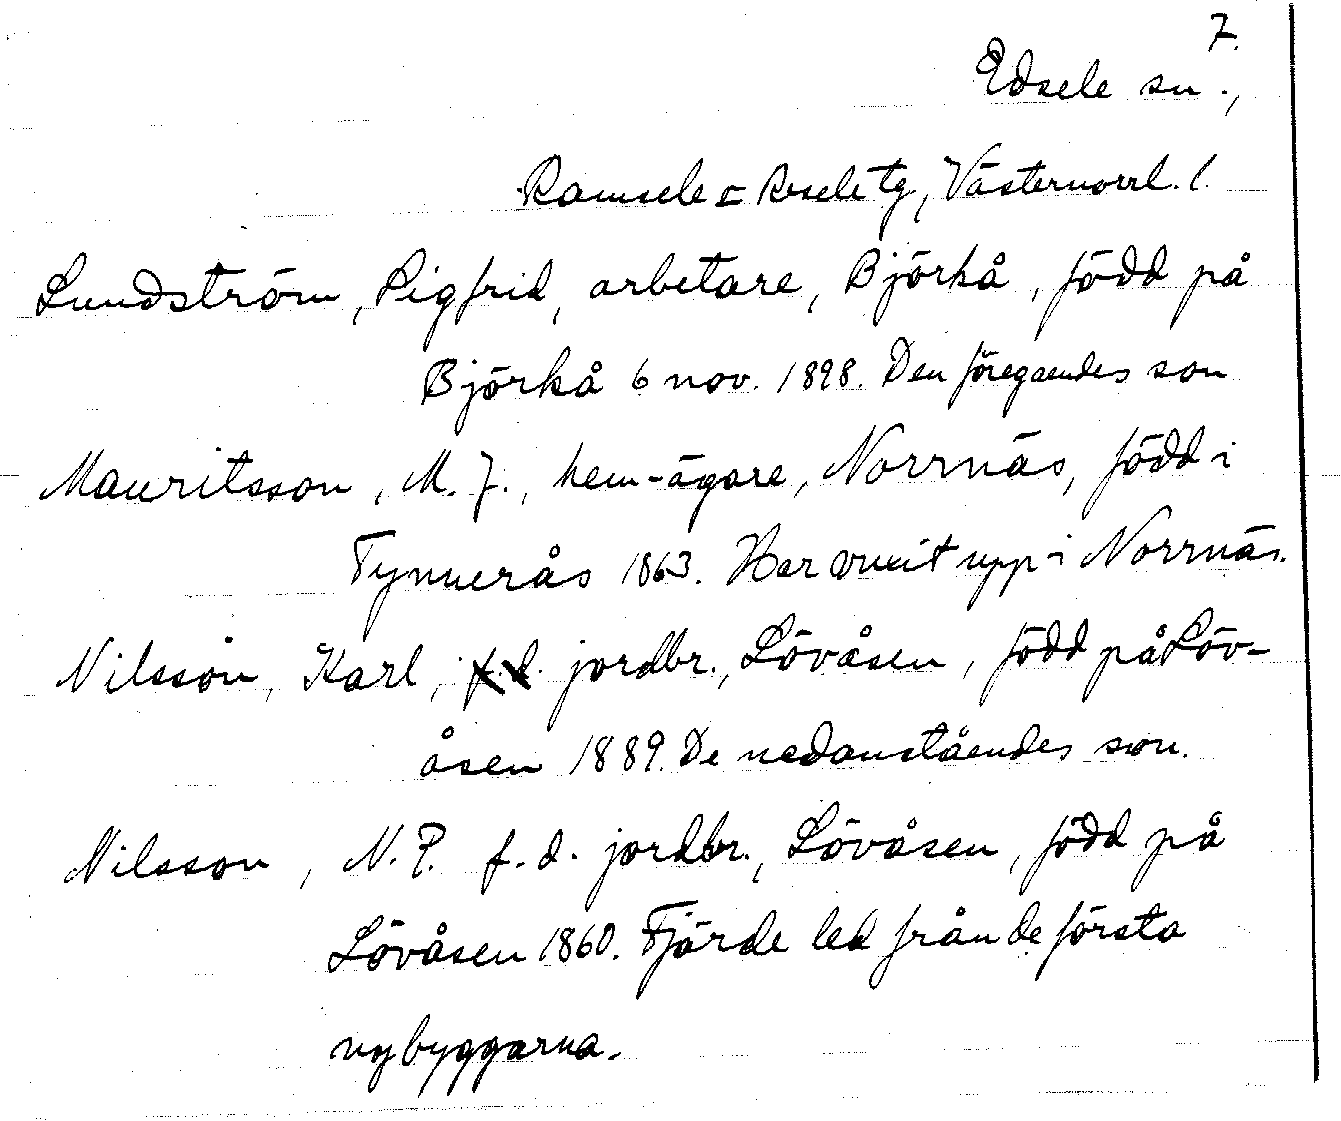 7.
Edsele sn.,
Ramsele o Resele tg, Västernorrl. l.
Lundström, Sigfrid, arbetare, Björkå, född på
Björkå 6 nov. 1898. Den föregaendes son
Mauritsson, M. J., hem-ägare, Norrnäs, född i
Tynnerås 1863. Har vuxit upp i Norrnäs.
Nilsson, Karl, f.d. jordbr., Lövåsen, född på Löv-
åsen 1889. De nedanståendes son.
Nilsson, N. P. f.d. jordbr., Lövåsen, född på
Lövåsen 1860. Fjärde led från de första
nybyggarna.